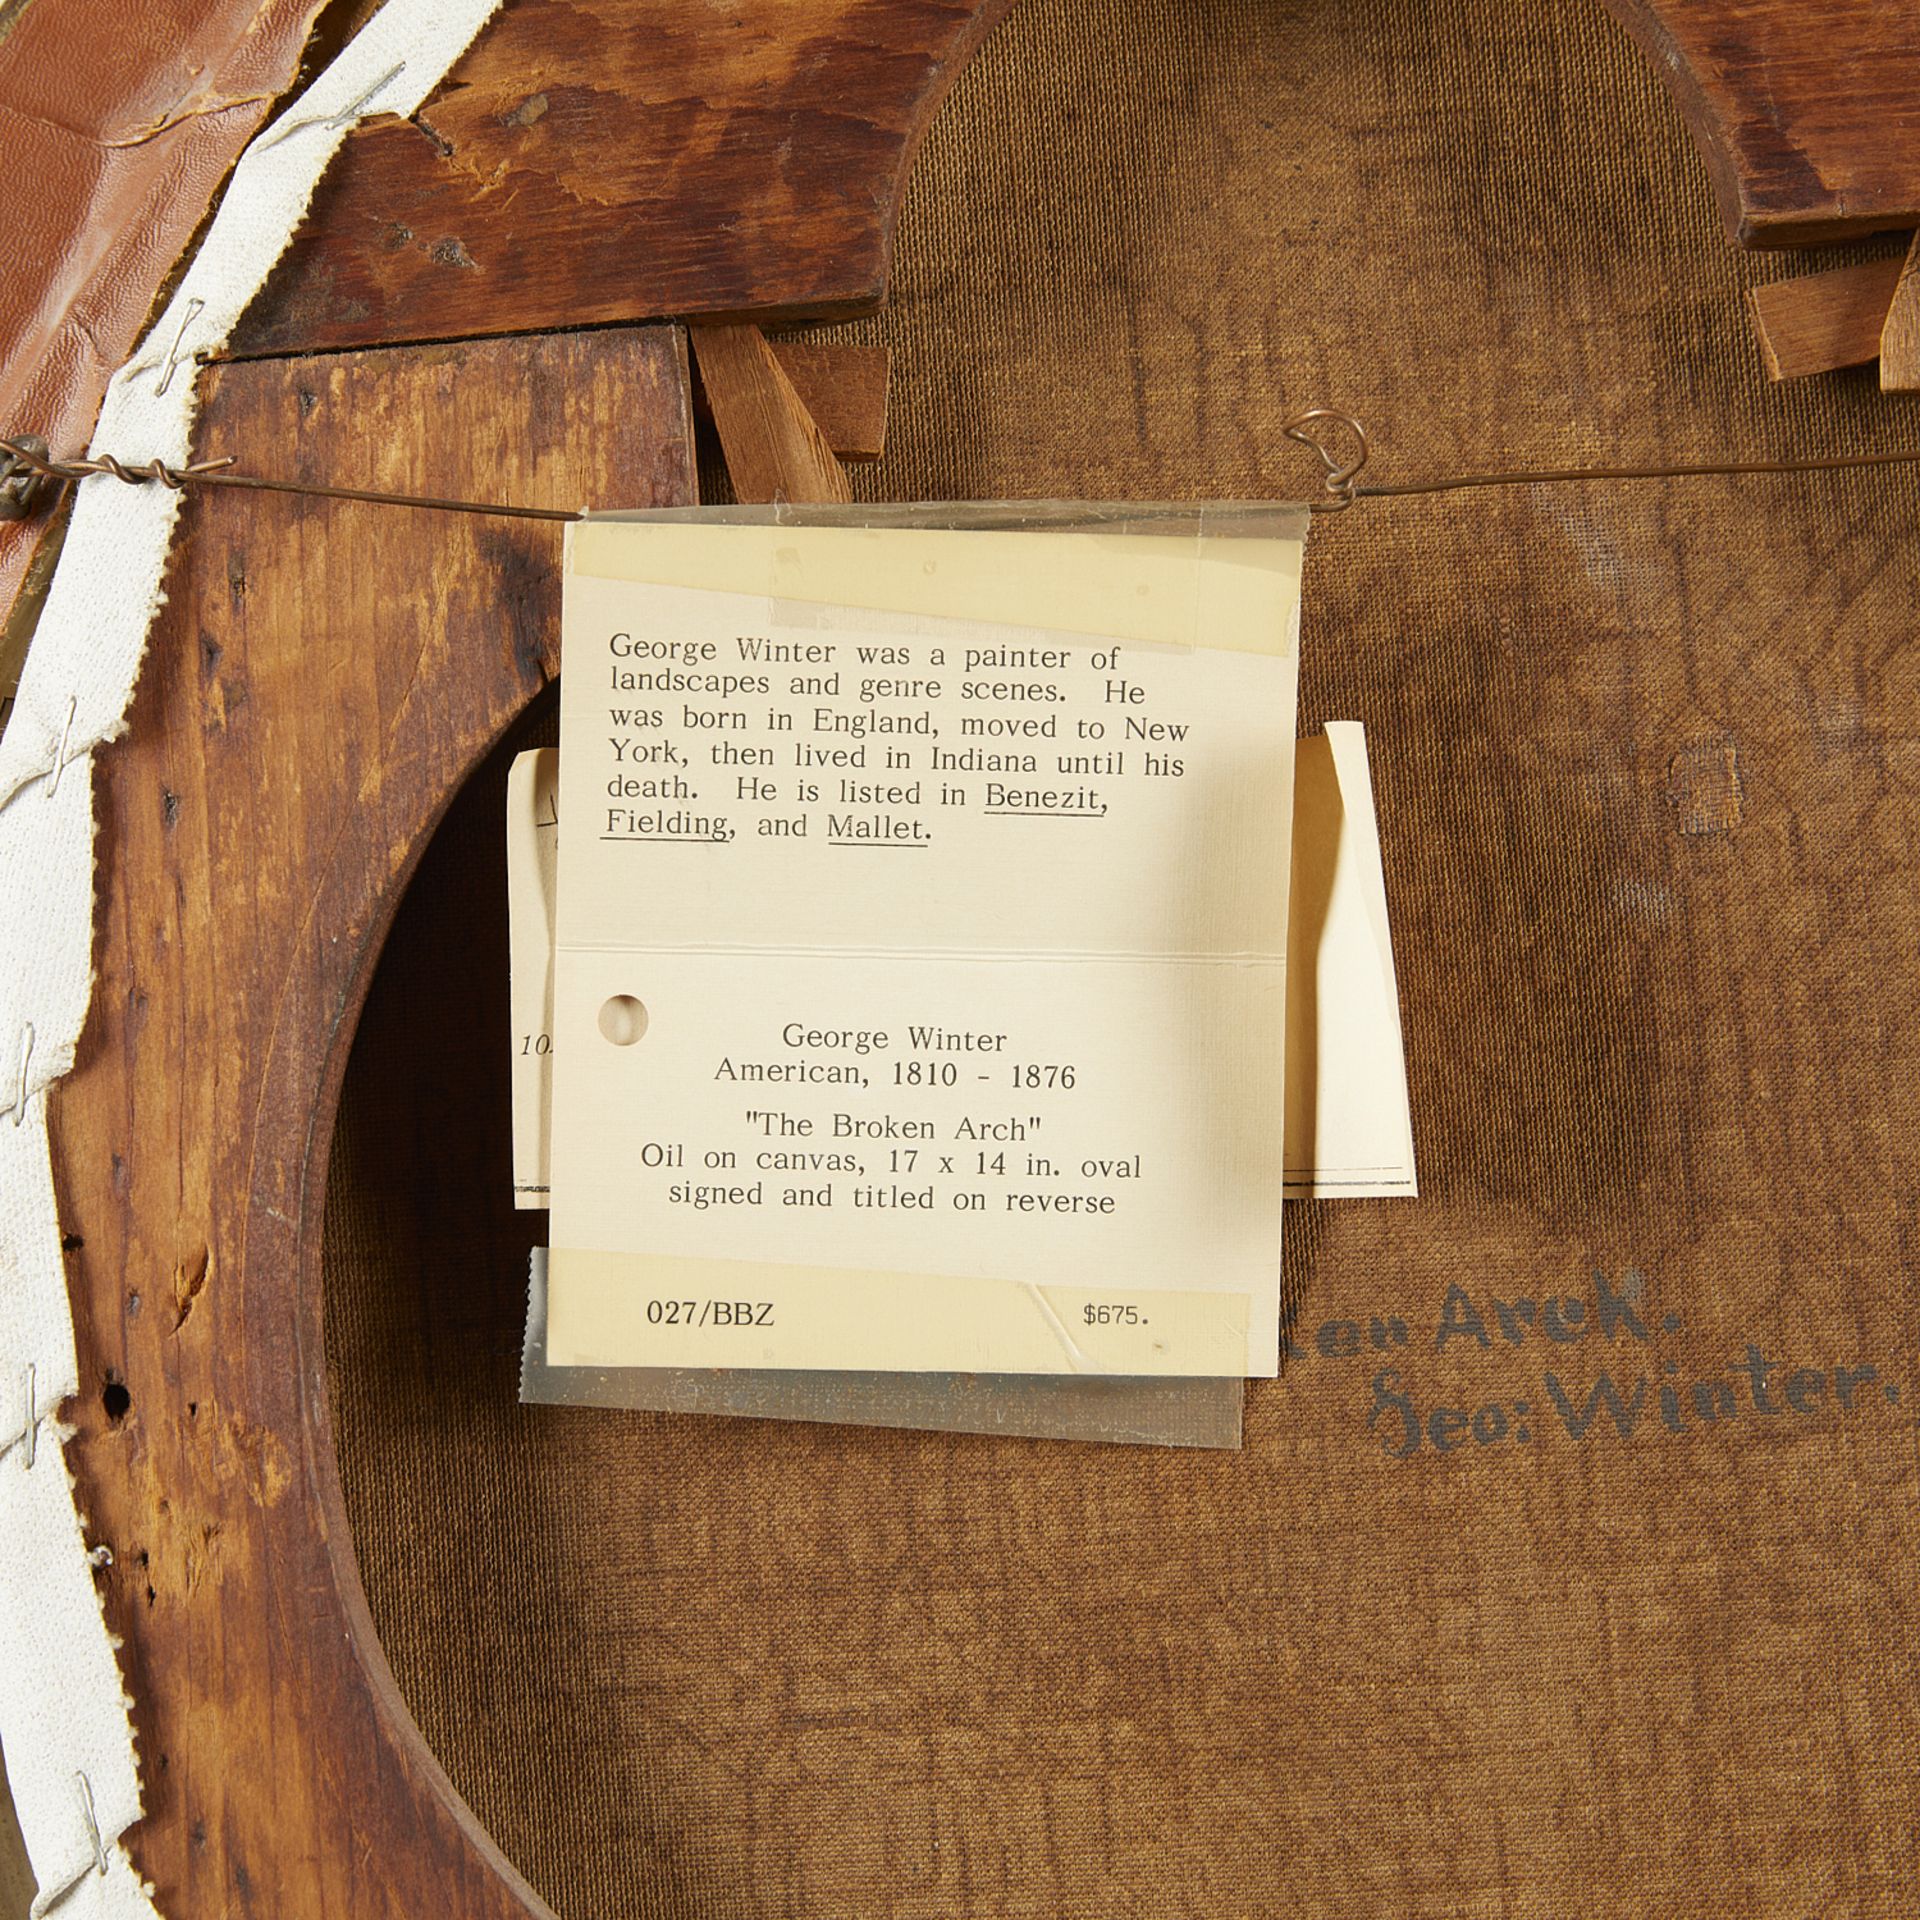 George Winter was a painter of
landscapes and genre scenes. He
was born in England, moved to New
York, then lived in Indiana until his
death. He is listed in Benezit,
Fielding, and Mallet.
10.
George Winter
American, 1810 - 1876
"The Broken Arch"
Oil on canvas, 17 x 14 in. oval
signed and titled on reverse
027/BBZ $675.
Arch.
Geo: Winter.